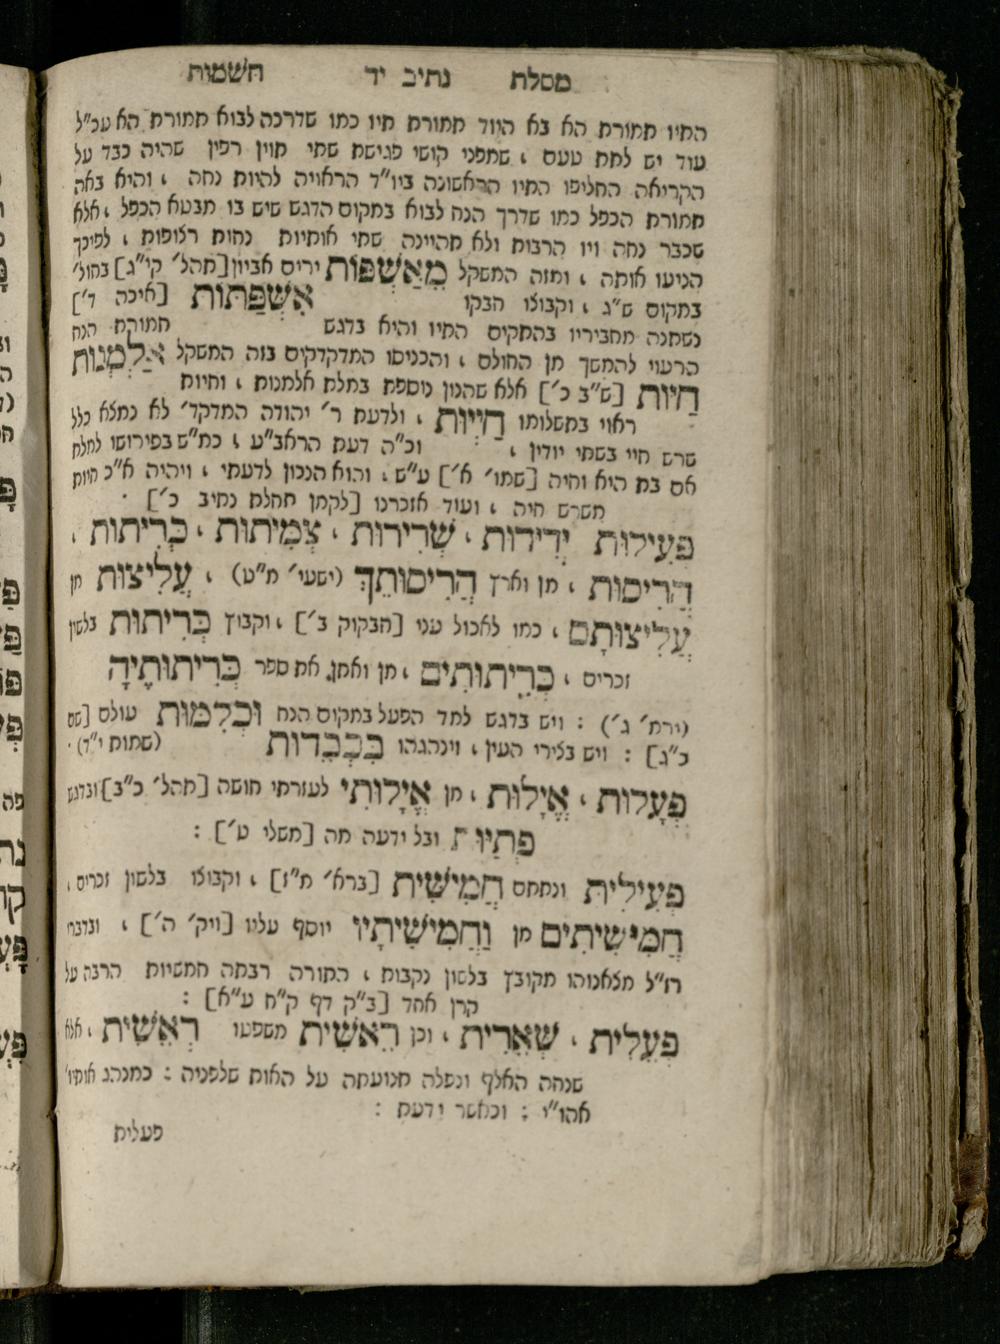 מסלת נתיב יד השמות
התיו תמורת הא בא היוד תמורת תיו כמו שדרכה לבוא תמורת הא עכ״ל
עוד יש לתת טעם , שמפני קושי פגישת שתי תוין רפין שהיה כבד על
הקריאה החליפו התיו הראשונה ביו״ד הראויה להיות נחה , והיא באה
תמורת הכפל כמו שדרך הנח לבוא במקום הדגש שיש בו מבטא הכפל , אלא
שכבר נחה ויו הרבות ולא תהיינה שתי אותיות נחות רצופות , לפיכך
הניעו אותה , ומזה המשקל מֵאַשְׁפּוֹת ירים אביון [תהל׳ קי״ג] בחול׳
במקום ש״ג , וקבוצו חבקו אַשְׁפַּתּוֹת [איכה ד׳]
נשתנה מחביריו בהתקים התיו והיא בדגש תמורת הנח
הרצוי להמשך מן החולם , והכניסו המדקדקים בזה המשקל אַלְמְנוּת
חַיּוּת [ש״ב כ׳] אלא שהנון נוספת במלת אלמנות , וחיות
ראוי בתשלומו חַיְיוּת , ולדעת ר׳ יהודה המדקד׳ לא נמצא כלל
שרש חיי בשתי יודין , וכ״ה דעת הראב״ע , כמ״ש בפירושו למלת
אם בת היא וחיה [שמו׳ א׳] ע״ש , והוא הנכון לדעתי , ויהיה א״כ חיות
משרש חיה , ועוד אזכרנו [לקמן תחלת נתיב כ׳] .
פְּעִילוּת יְדִידוּת , שְׁרִירוּת , צְמִיתוּת , כְּרִיתוּת ,
הֲרִיסוּת , מן וארץ הֲרִיסוּתֵךְ (ישעי׳ מ״ט) , עֲלִיצוּת מן
עֲלִיצוּתָם , כמו לאכול עני [חבקוק ב׳] , וקבוץ כְּרִיתוּת בלשון
זכרים , כְּרִיתוּתִים , מן ואתן את ספר כְּרִיתוּתֶיהָ
(ירמ׳ ג׳) : ויש בדגש למד הפעל במקום הנח וּכְלִמּוּת עולם [שם
כ״ג] : ויש בצירי העין , וינהגהו בִּכְבֵדוּת (שמות י״ד) .
פְּעָלוּת , אֱיָלוּת , מן אֱיָלוּתִי לעזרתי חושה [תהל׳ כ״ב] ובדגש
פְּתַיּוּת ובל ידעה מה [משלי ט׳] :
פְּעִילִית ונחתם חֲמִישִׁית [ברא׳ מ״ז] , וקבוצו בלשון זכרים ,
חֲמִישִׁיתִים מן וַחֲמִישִׁיתָיו יוסף עליו [ויק׳ ה׳] , ובדברי
רז״ל מצאנוהו מקובץ בלשון נקבות , התורה רבתה חמשיות הרבה על
קרן אחד [ב״ק דף ק״ח ע״א] :
פְּעֵלִית , שְׁאֵרִית , וכן רֵאשִׁית משפטו רְאֵשִׁית , אלא
שנחה האלף ונפלה תנועתה על האות שלפניה : כמנהג אותיו׳
אהו״י : וכאשר ידעת :
פעלית